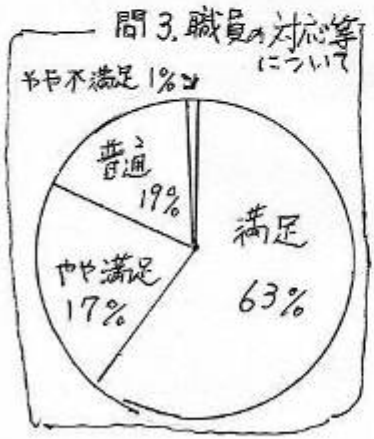 問3.職員の対応等
について
やや不満足 1%
普通
19%
満足
63%
やや満足
17%